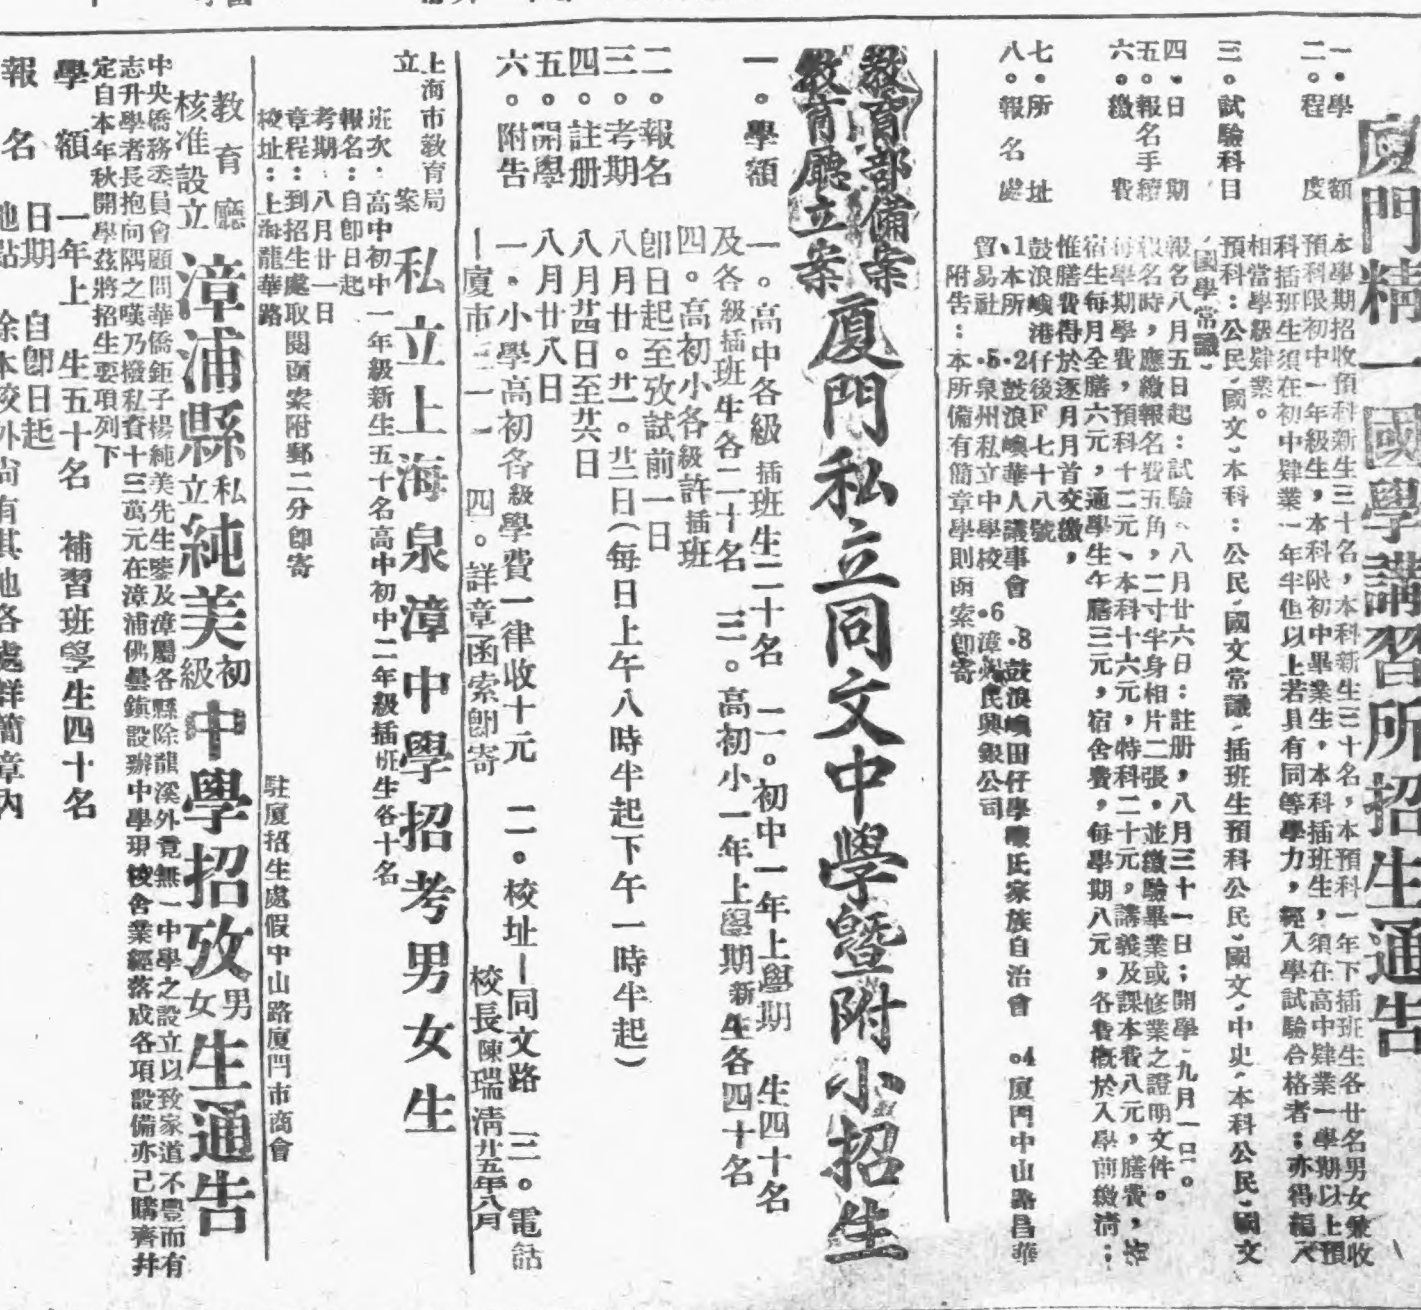 廈門精一國學講習所招生通告
一．學額　本學期招收預科新生三十名，本科新生三十名，本預科一年下插班生各廿名男女兼收
二。程度　預科限初中一年級生，本科限初中畢業生，本科插班生，須在高中肄業一學期以上預
科插班生須在初中肄業一年半但以上若具有同等學力，經入學試驗合格者：亦得編入
相當學級肄業。
三。試驗科目　預科：公民、國文、本科：公民、國文常識、插班生預科公民、國文、中史、本科公民、國文
、國學常識、
四．日期　報名八月五日起：試驗、八月廿六日：註册，八月三十一日；開學、九月一日。
五。報名手續　報名時，應繳報名費五角，二寸半身相片二張，並繳驗畢業或修業之證明文件。
六。繳費　每學期學費，預科十二元、本科十六元，特科二十元。講義及課本費八元，膳費，
宿生每月全膳六元，通學生午膳三元，宿舍費，每學期八元，各費概於入學前繳清；
惟膳費得於逐月月首交繳，
七．所址　鼓浪嶼港仔後F七十八號
八。報名處　1本所．2鼓浪嶼華人議事會．3鼓浪嶼田仔學陳氏家族自治會。4廈門中山路昌華
貿易社．5泉州私立中學校．6漳州民興銀公司
附告：本所備有簡章學則函索卽寄
教育部備案
教育廳立案
廈門私立同文中學暨附小招生
一。學額　一。高中各級插班生二十名　二。初中一年上學期生四十名
及各級插班生各二十名　三。高初小一年上學期新生各四十名
四。高初小各級許插班
二。報名　卽日起至攷試前一日
三。考期　八月廿。廿一。廿二日（每日上午八時半起下午一時半起）
四。註册　八月廿四日至廿六日
五。開學　八月廿八日
六。附告　一．小學高初各級學費一律收十元　二。校址—同文路　三。電話
—廈市三一一　四。詳章函索卽寄　校長陳瑞清廿五年八月
上海市敎育局
立案
私立上海泉漳中學招考男女生
班次．高中初中一年級新生五十名高中初中二年級插班生各十名
報名：自卽日起
考期．八月廿一日
章程：到招生處取閱函案附郵二分卽寄
校址：上海龍華路　駐廈招生處假中山路廈門市商會
教育廳
核准設立
漳浦縣私立純美初級中學招攷男女生通告
中央僑務委員會顧問華僑鉅子楊純美先生鑒及漳屬各縣除龍溪外竟無一中學之設立以致家道不豐而有
志升學者長抱向隅之嘆乃撥私貲十三萬元在漳浦佛曇鎮設辦中學現校舍業經落成各項設備亦已購齊幷
定自本年秋開學茲將招生要項列下
學額　一年上　生五十名　補習班學生四十名
報名　日期　自卽日起
地點　除本校外尚有其他各處詳簡章內